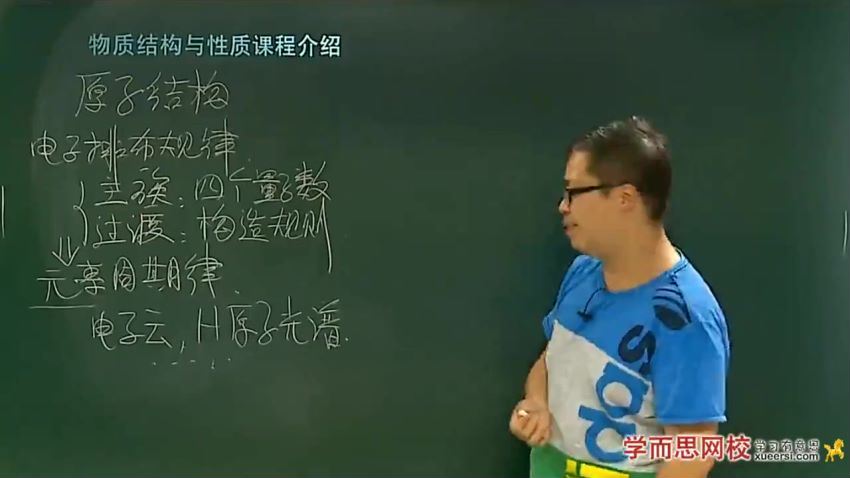 物质结构与性质课程介绍
原子结构
电子排布规律
主族：四个量子数
过渡：构造规则
元素周期律
电子云，H原子光谱.
学而思网校
学习有意思
xueersi.com